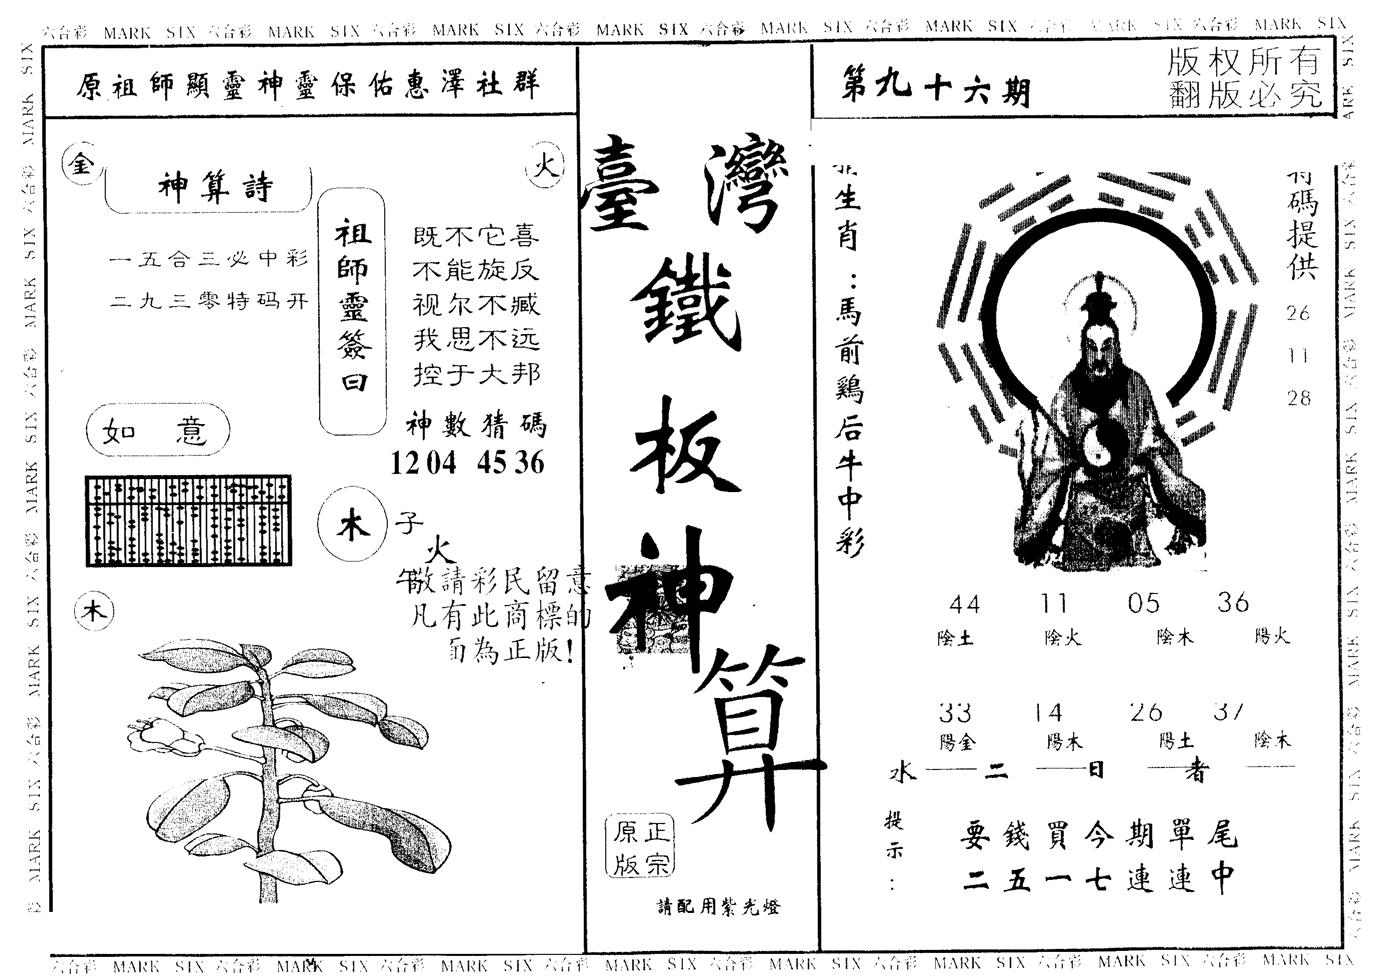 六合彩 MARK SIX 六合彩 MARK SIX 六合彩 MARK SIX 六合彩 MARK SIX 六合彩 MARK SIX 六合彩 MARK SIX 六合彩 MARK SIX 六合彩 MARK SIX
原祖師顯靈神靈保佑惠澤社群
金
火
神算詩
一五合三必中彩
二九三零特码开
祖師靈簽曰
既不它喜
不能旋反
视尔不臧
我思不远
控于大邦
神數猜碼
12 04 45 36
如意
木
子
火
午
敬請彩民留意
凡有此商標的
為正版!
木
臺灣
鐵
板
神
算
正宗
原版
請配用紫光燈
第九十六期
版权所有
翻版必究
生肖:馬前鷄后牛中彩
碼提供
26
11
28
44 11 05 36
陰土 陰火 陰木 陽火
33 14 26 37
陽金 陽木 陽土 陰木
水 二 日 者
提示:
要錢買今期單尾
二五一七連連中
六合彩 MARK SIX 六合彩 MARK SIX 六合彩 MARK SIX 六合彩 MARK SIX 六合彩 MARK SIX 六合彩 MARK SIX 六合彩 MARK SIX 六合彩 MARK SIX